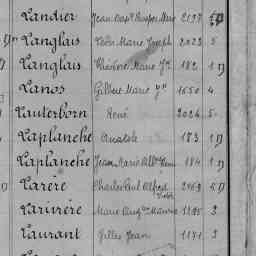 Landier Jean Bapt Prosper Marie 2197
Langlais Léon Marie Joseph 2023 5
Langlais Théodore Marie Jh 182 1 D
Lanos Gilbert Marie 1650 4
Lauterborn René 2024 5
Laplanche Anatole 183 1 D
Laplanche Jean Marie 184 1 D
Larère Charles Paul Alfred 2469 5 D
Larivière Marie Aug Maurice 1195 3
Laurant Gilles Jean 1171 3